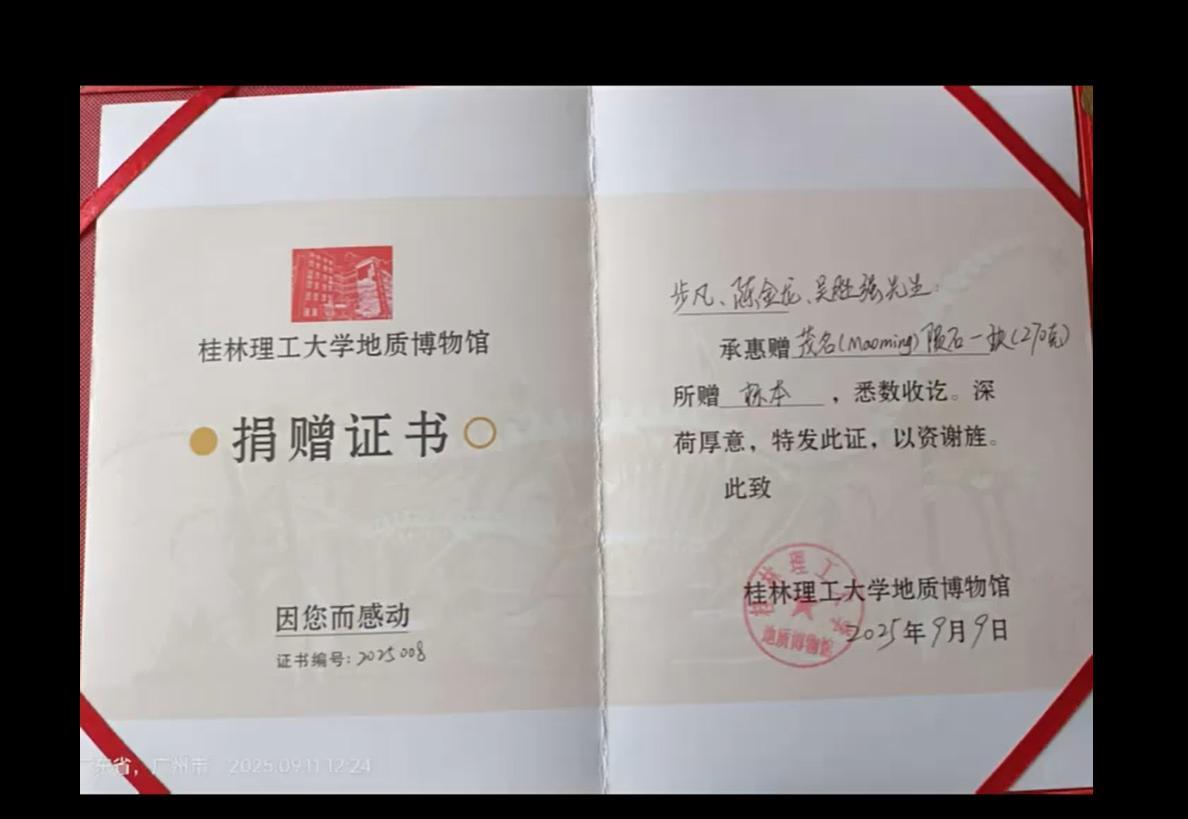 桂林理工大学地质博物馆
捐赠证书
因您而感动
证书编号: 2025008
步凡、陈金龙、吴胜强先生:
承惠赠茂名(Maoming)陨石一块(270克)
所赠 标本 ,悉数收讫。深
荷厚意,特发此证,以资谢旌。
此致
桂林理工大学地质博物馆
2025年9月9日
桂林理工大学
地质博物馆
广东省,广州市 2025.09.11 12:24